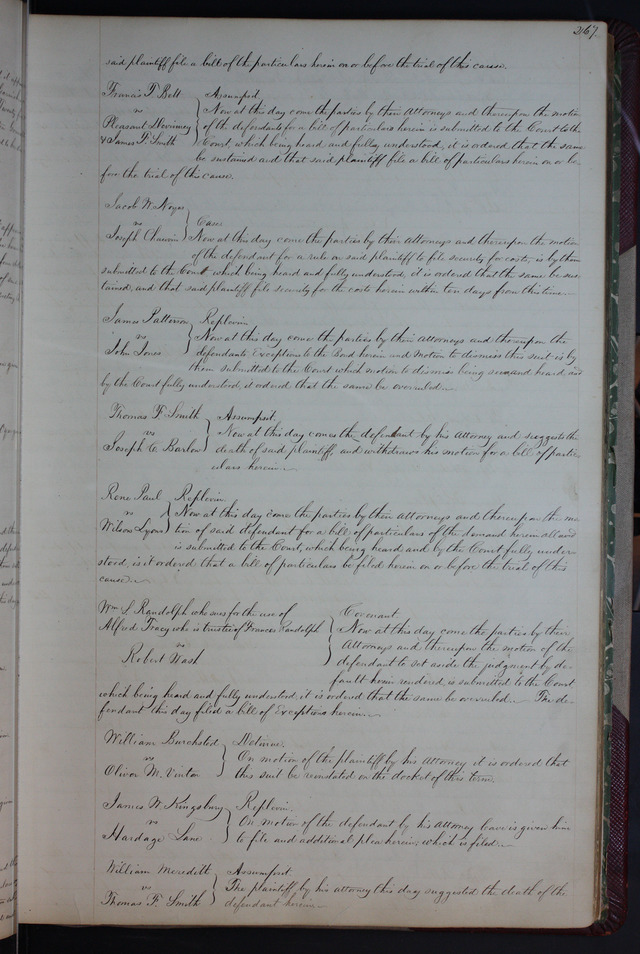 267
said plaintiff file a bill of the particulars herein on or before the trial of this cause.
Francis T Belt } Assumpsit
vs Now at this day come the parties by their Attorneys and thereupon the motion
Pleasant of the defendants for a bill of particulars herein is submitted to the Court to the
& James F Smith Court which being heard and fully understood, it is ordered that the same
be sustained and that said plaintiff file a bill of particulars herein on or be-
fore the trial of this cause.
Jacob W Noyes
vs } Case
Joseph Now at this day come the parties by their Attorneys and thereupon the motion
of the defendant for a rule on said plaintiff to file security for costs, is by them
submitted to the Court which being heard and fully understood, it is ordered that the same be sus-
tained, and that said plaintiff file security for the costs herein within ten days from this time
James Patterson } Replevin
vs Now at this day come the parties by their Attorneys and thereupon the
John Jones defendants Exceptions to the Bond herein and Motion to dismiss this suit is by
them submitted to the Court which motion to dismiss being seen and heard and
by the Court fully understood, it ordered that the same be overruled
Thomas F. Smith } Assumpsit
vs Now at this day comes the defendant by his Attorney and suggests the
Joseph C Barlow death of said plaintiff, and withdraws his motion for a bill of partic-
ulars herein
Rene Paul } Replevin
vs Now at this day come the parties by their attorneys and thereupon the mo-
Wilson Lyons tion of said defendant for a bill of particulars of the demand herein
is submitted to the Court, which being heard and by the Court fully under-
stood, is it ordered that a bill of particulars be filed herein on or before the trial of this
cause
Wm S. Randolph who sues for the use of } Covenant
Alfred Tracy who is trustee of Frances Randolph Now at this day come the parties by their
vs Attorneys and thereupon the motion of the
Robert Wash defendant to set aside the judgment by de-
fault herein rendered is submitted to the Court
which being heard and fully understood, it is ordered that the same be overruled The de-
fendant this day filed a bill of Exceptions herein
William Burchsted } Detinue.
vs On motion of the plaintiff by his Attorney it is ordered that
Oliver M. Vinton this suit be reinstated on the docket of this term.
James W Kingsbury } Replevin.
vs On motion of the defendant by his Attorney leave is given him
Hardage Lane to file and additional plea herein, which is filed
William Meredith } Assumpsit
vs The plaintiff by his attorney this day suggested the death of the
Thomas F. Smith defendant herein